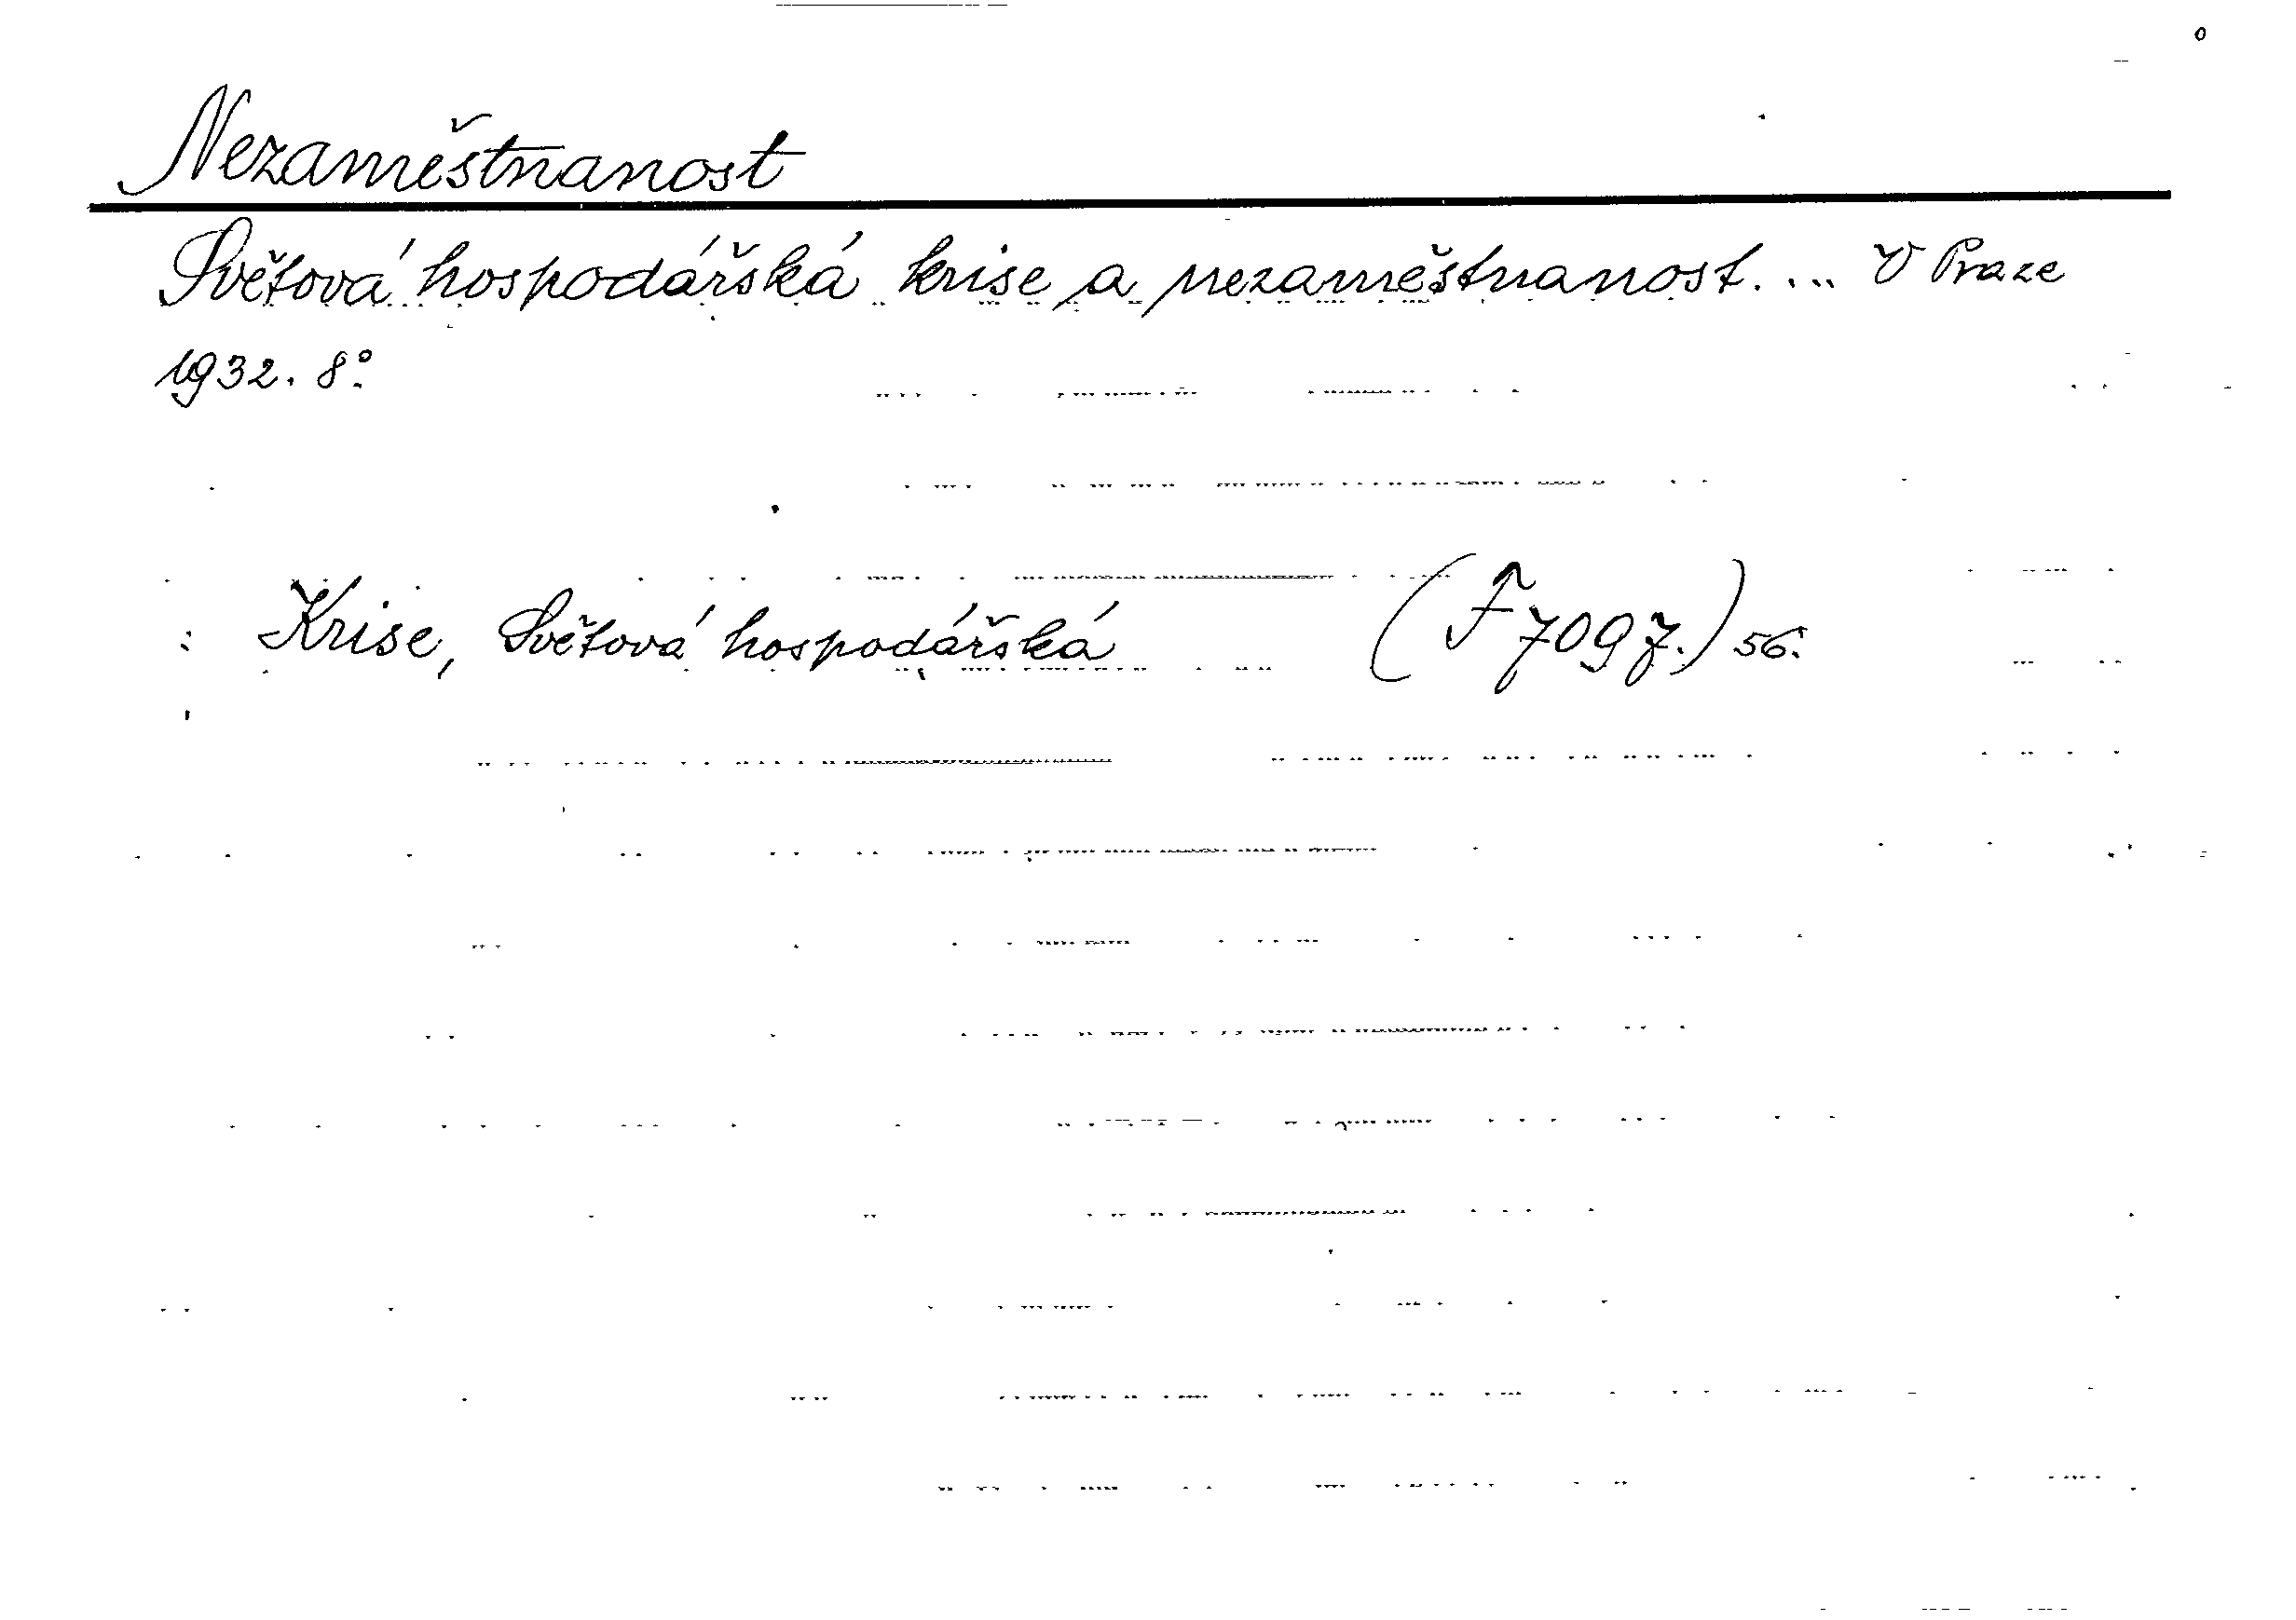 Nezaměstnanost
Světová hospodářská krise a nezaměstnanost. ... V Praze
1932. 8°.
Krise, Světová hospodářská (F 7097.) 56.